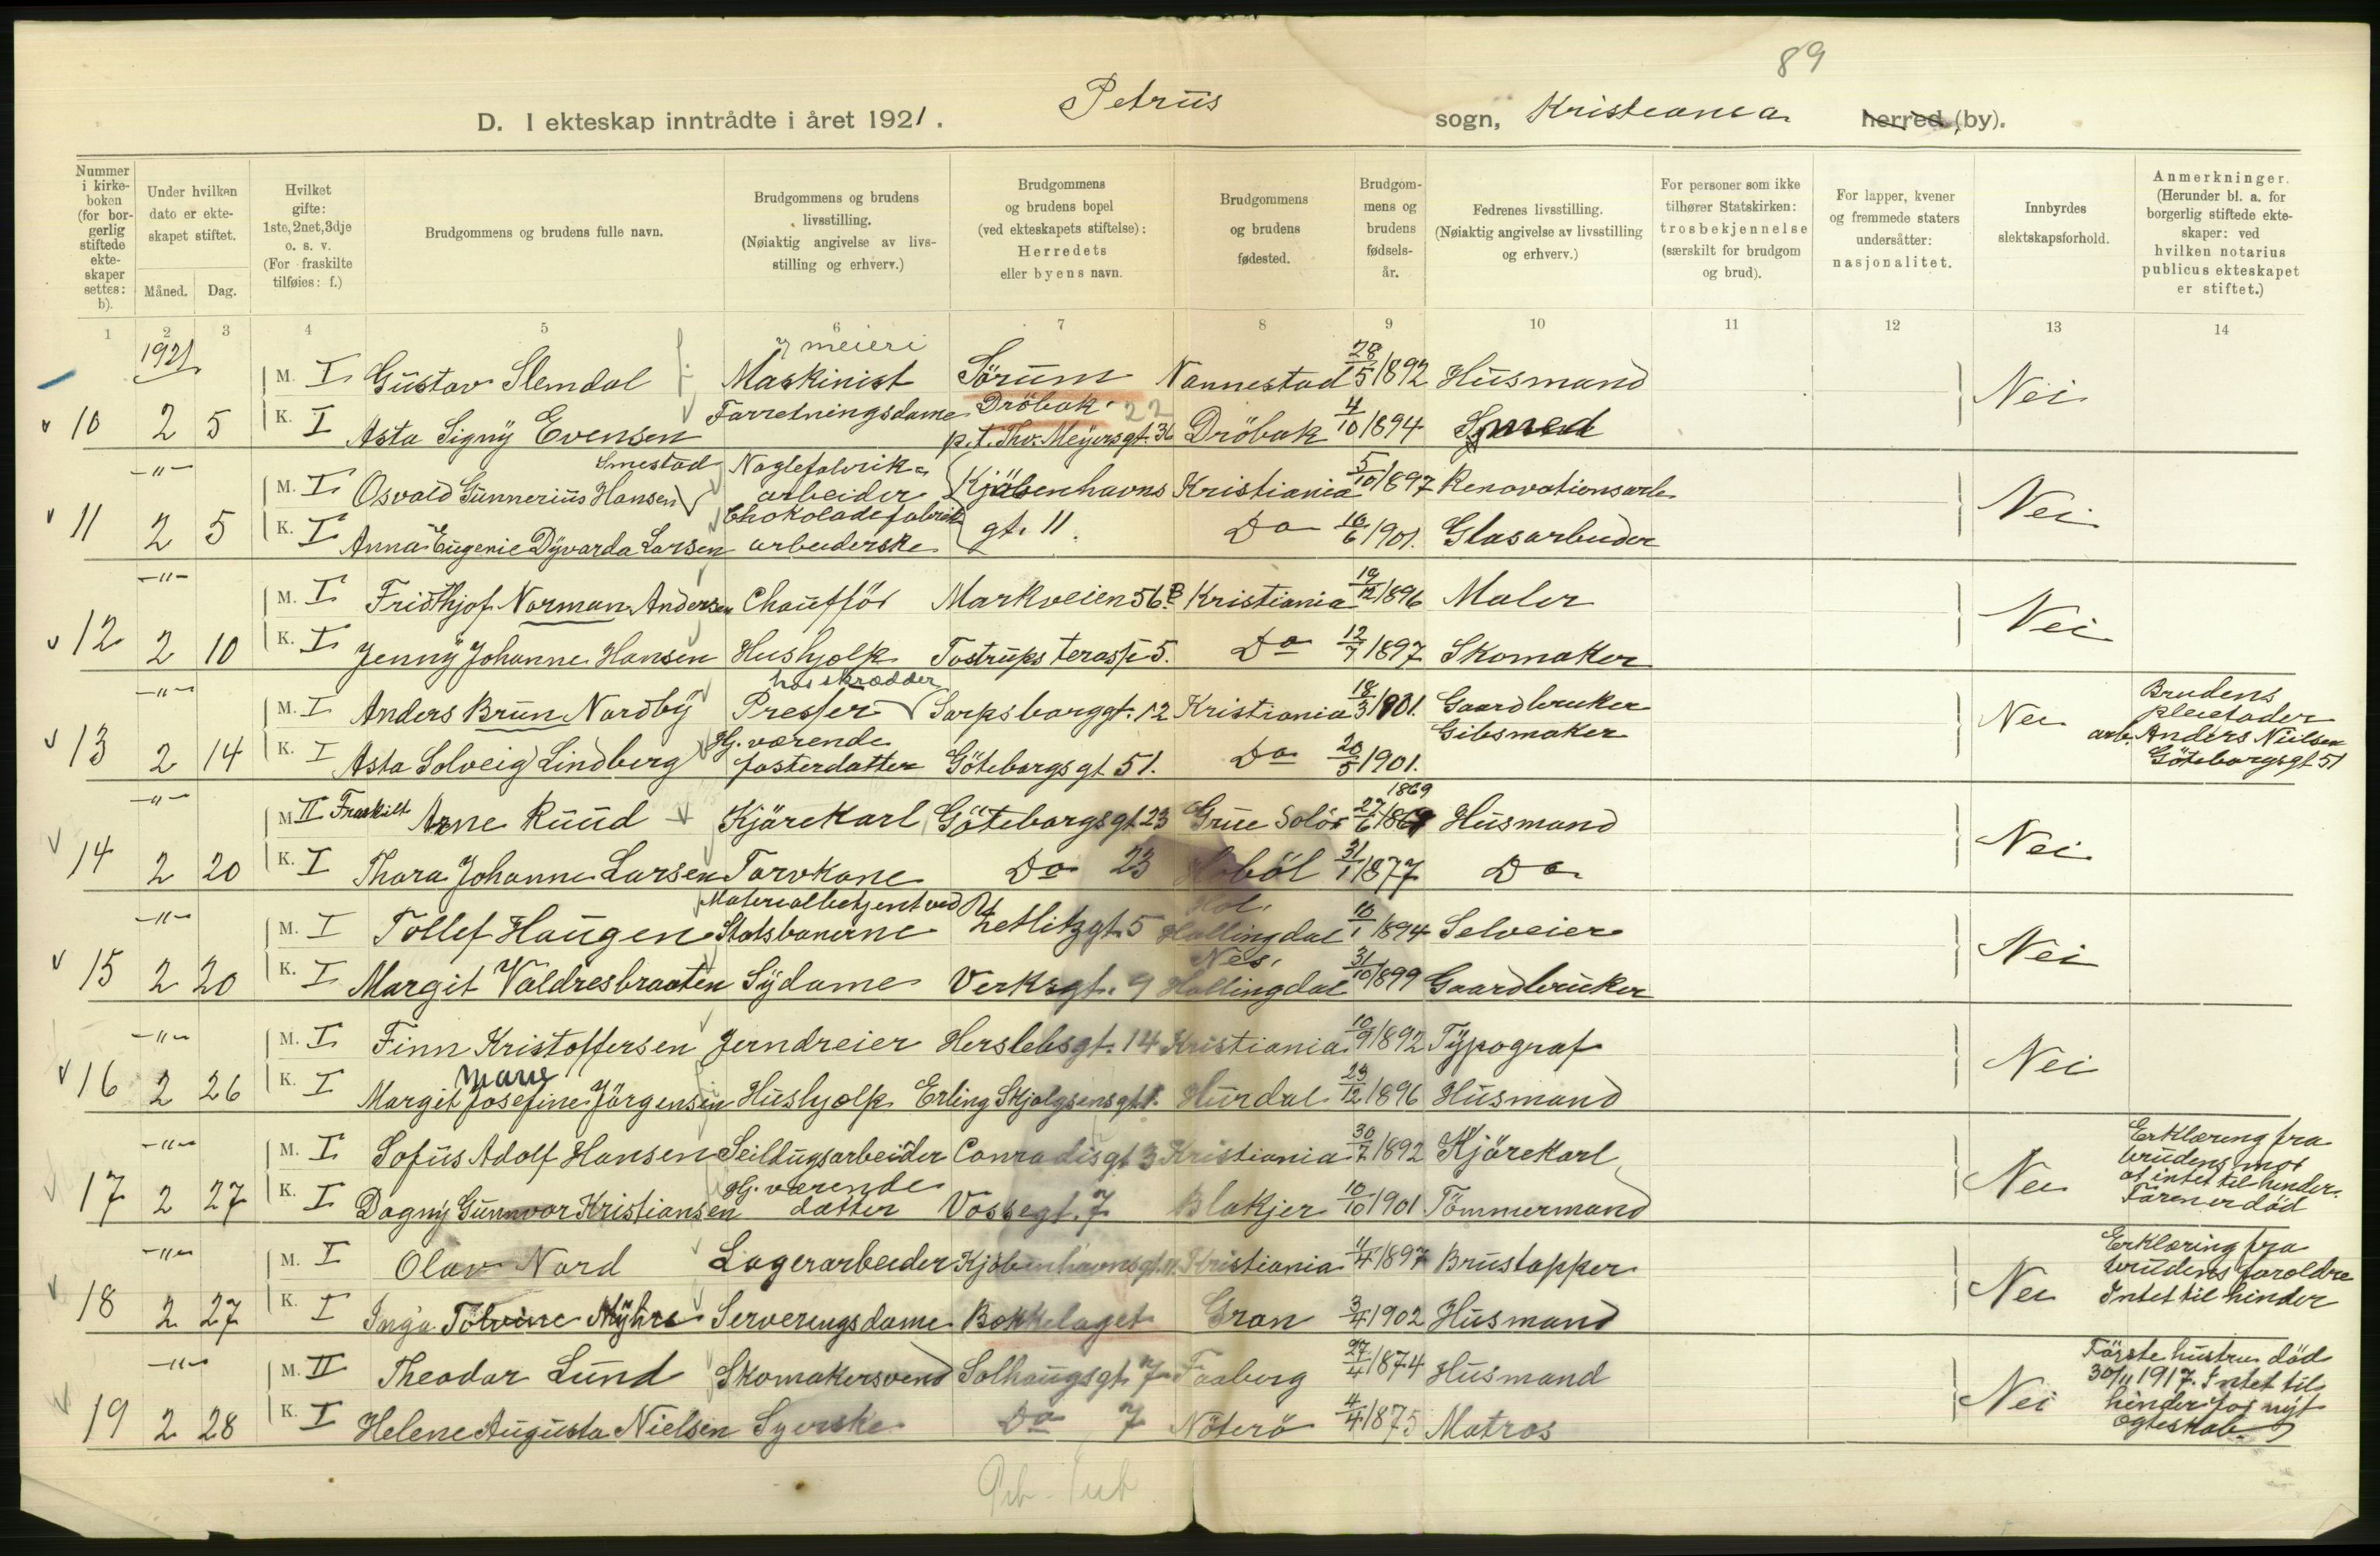 89
D. I ekteskap inntrådte i året 1921. Petrus sogn, Kristiania herred (by).
Nummer i kirke-boken (for bor-gerlig stiftede ekte-skaper settes: b).
Under hvilken dato er ekte-skapet stiftet.
Måned. Dag.
Hvilket gifte: 1ste, 2net, 3dje o. s. v. (For fraskilte tilføies: f.)
Brudgommens og brudens fulle navn.
Brudgommens og brudens livsstilling. (Nøiaktig angivelse av livs-stilling og erhverv.)
Brudgommens og brudens bopel (ved ekteskapets stiftelse): Herredets eller byens navn.
Brudgommens og brudens fødested.
Brudgom-mens og brudens fødsels-år.
Fedrenes livsstilling. (Nøiaktig angivelse av livsstilling og erhverv.)
For personer som ikke tilhører Statskirken: trosbekjennelse (særskilt for brudgom og brud).
For lapper, kvener og fremmede staters undersåtter: nasjonalitet.
Innbyrdes slektskapsforhold.
Anmerkninger. (Herunder bl. a. for borgerlig stiftede ekte-skaper: ved hvilken notarius publicus ekteskapet er stiftet.)
1 2 3 4 5 6 7 8 9 10 11 12 13 14
1921
meieri
M. I Gustav Slemdal Maskinist Sörum Nannestad 28/5 1892 Husmand Nei
10 2 5 K. I Asta Signy Evensen Forretningsdame Dröbak 22 p.t. Thv. Meyersgt. 36 Dröbak 4/10 1894 Smed
-"- M. I Osvald Gunnerius Hansen Smestad Naglefabrik-arbeider Kjöbenhavns Kristiania 5/10 1897 Renovationsarb. Nei
11 2 5 K. I Anna Eugenie Dyvarda Larsen Chokoladefabrik arbeiderske gt. 11. Do 10/6 1901. Glasarbeider
-"- M. I Fridthjof Norman Andersen Chaufför Markveien 56 B Kristiania 19/12 1896 Maler Nei
12 2 10 K. I Jenny Johanne Hansen Hushjelp Tostrups terasse 5. Do 12/7 1897 Skomaker
-"- M. I Anders Brun Nordby Presser hos skrædder Sarpsborggt. 12 Kristiania 18/3 1901. Gaardbruker Nei
13 2 14 K. I Asta Solveig Lindberg Hj. værende fosterdatter Göteborgsgt 51. Do 20/5 1901. Gibsmaker
Brudens pleiefader arb. Anders Nielsen Göteborgsgt 51
-"- M II Fraskilt Arne Ruud Kjörekarl Göteborgsgt 23 Grue Solör 27/6 1869 1869 Husmand Nei
14 2 20 K. I Thora Johanne Larsen Torvkone Do 23 Hoböl 31/1 1877 Do
-"- M. I Tollef Haugen Materialbetjent ved Statsbanerne Zetlitzgt. 5 Hol, Hallingdal 10/1 1894 Selveier Nei
15 2 20 K. I Margit Valdresbraaten Sydame Verksgt. 9 Nes, Hallingdal 31/10 1899 Gaardbruker
-"- M. I Finn Kristoffersen Jerndreier Herslebsgt. 14 Kristiania 10/9 1892 Typograf Nei
16 2 26 K. I Margit Marie Josefine Jörgensen Hushjelp Erling Skjalgsensgt 1. Hurdal 23/12 1896 Husmand
-"- M. I Sofus Adolf Hansen Seildugsarbeider Conradisgt 3 Kristiania 30/7 1892 Kjörekarl Nei
17 2 27 K. I Dagny Gunnvor Kristiansen Hj. værende datter Vossegt. 7 Blakjer 10/10 1901 Tömmermand
Erklæring fra brudens mor at intet til hinder. Faren er död
-"- M. I Olav Nord Lagerarbeider Kjöbenhavnsgt. 11. Kristiania 11/4 1897 Brustapper Nei
18 2 27 K. I Inga Tolvine Myhre Serveringsdame Bekkelaget Gran 3/4 1902 Husmand
Erklæring fra brudens foreldre Intet til hinder
-"- M. II Theodor Lund Skomakersvend Solhaugsgt. 7 Faaberg 27/4 1874 Husmand Nei
19 2 28 K. I Helene Augusta Nielsen Syerske Do 7 Nöterö 4/4 1875 Matros
Förste hustru död 30/11 1917. Intet til hinder for nyt egteskab